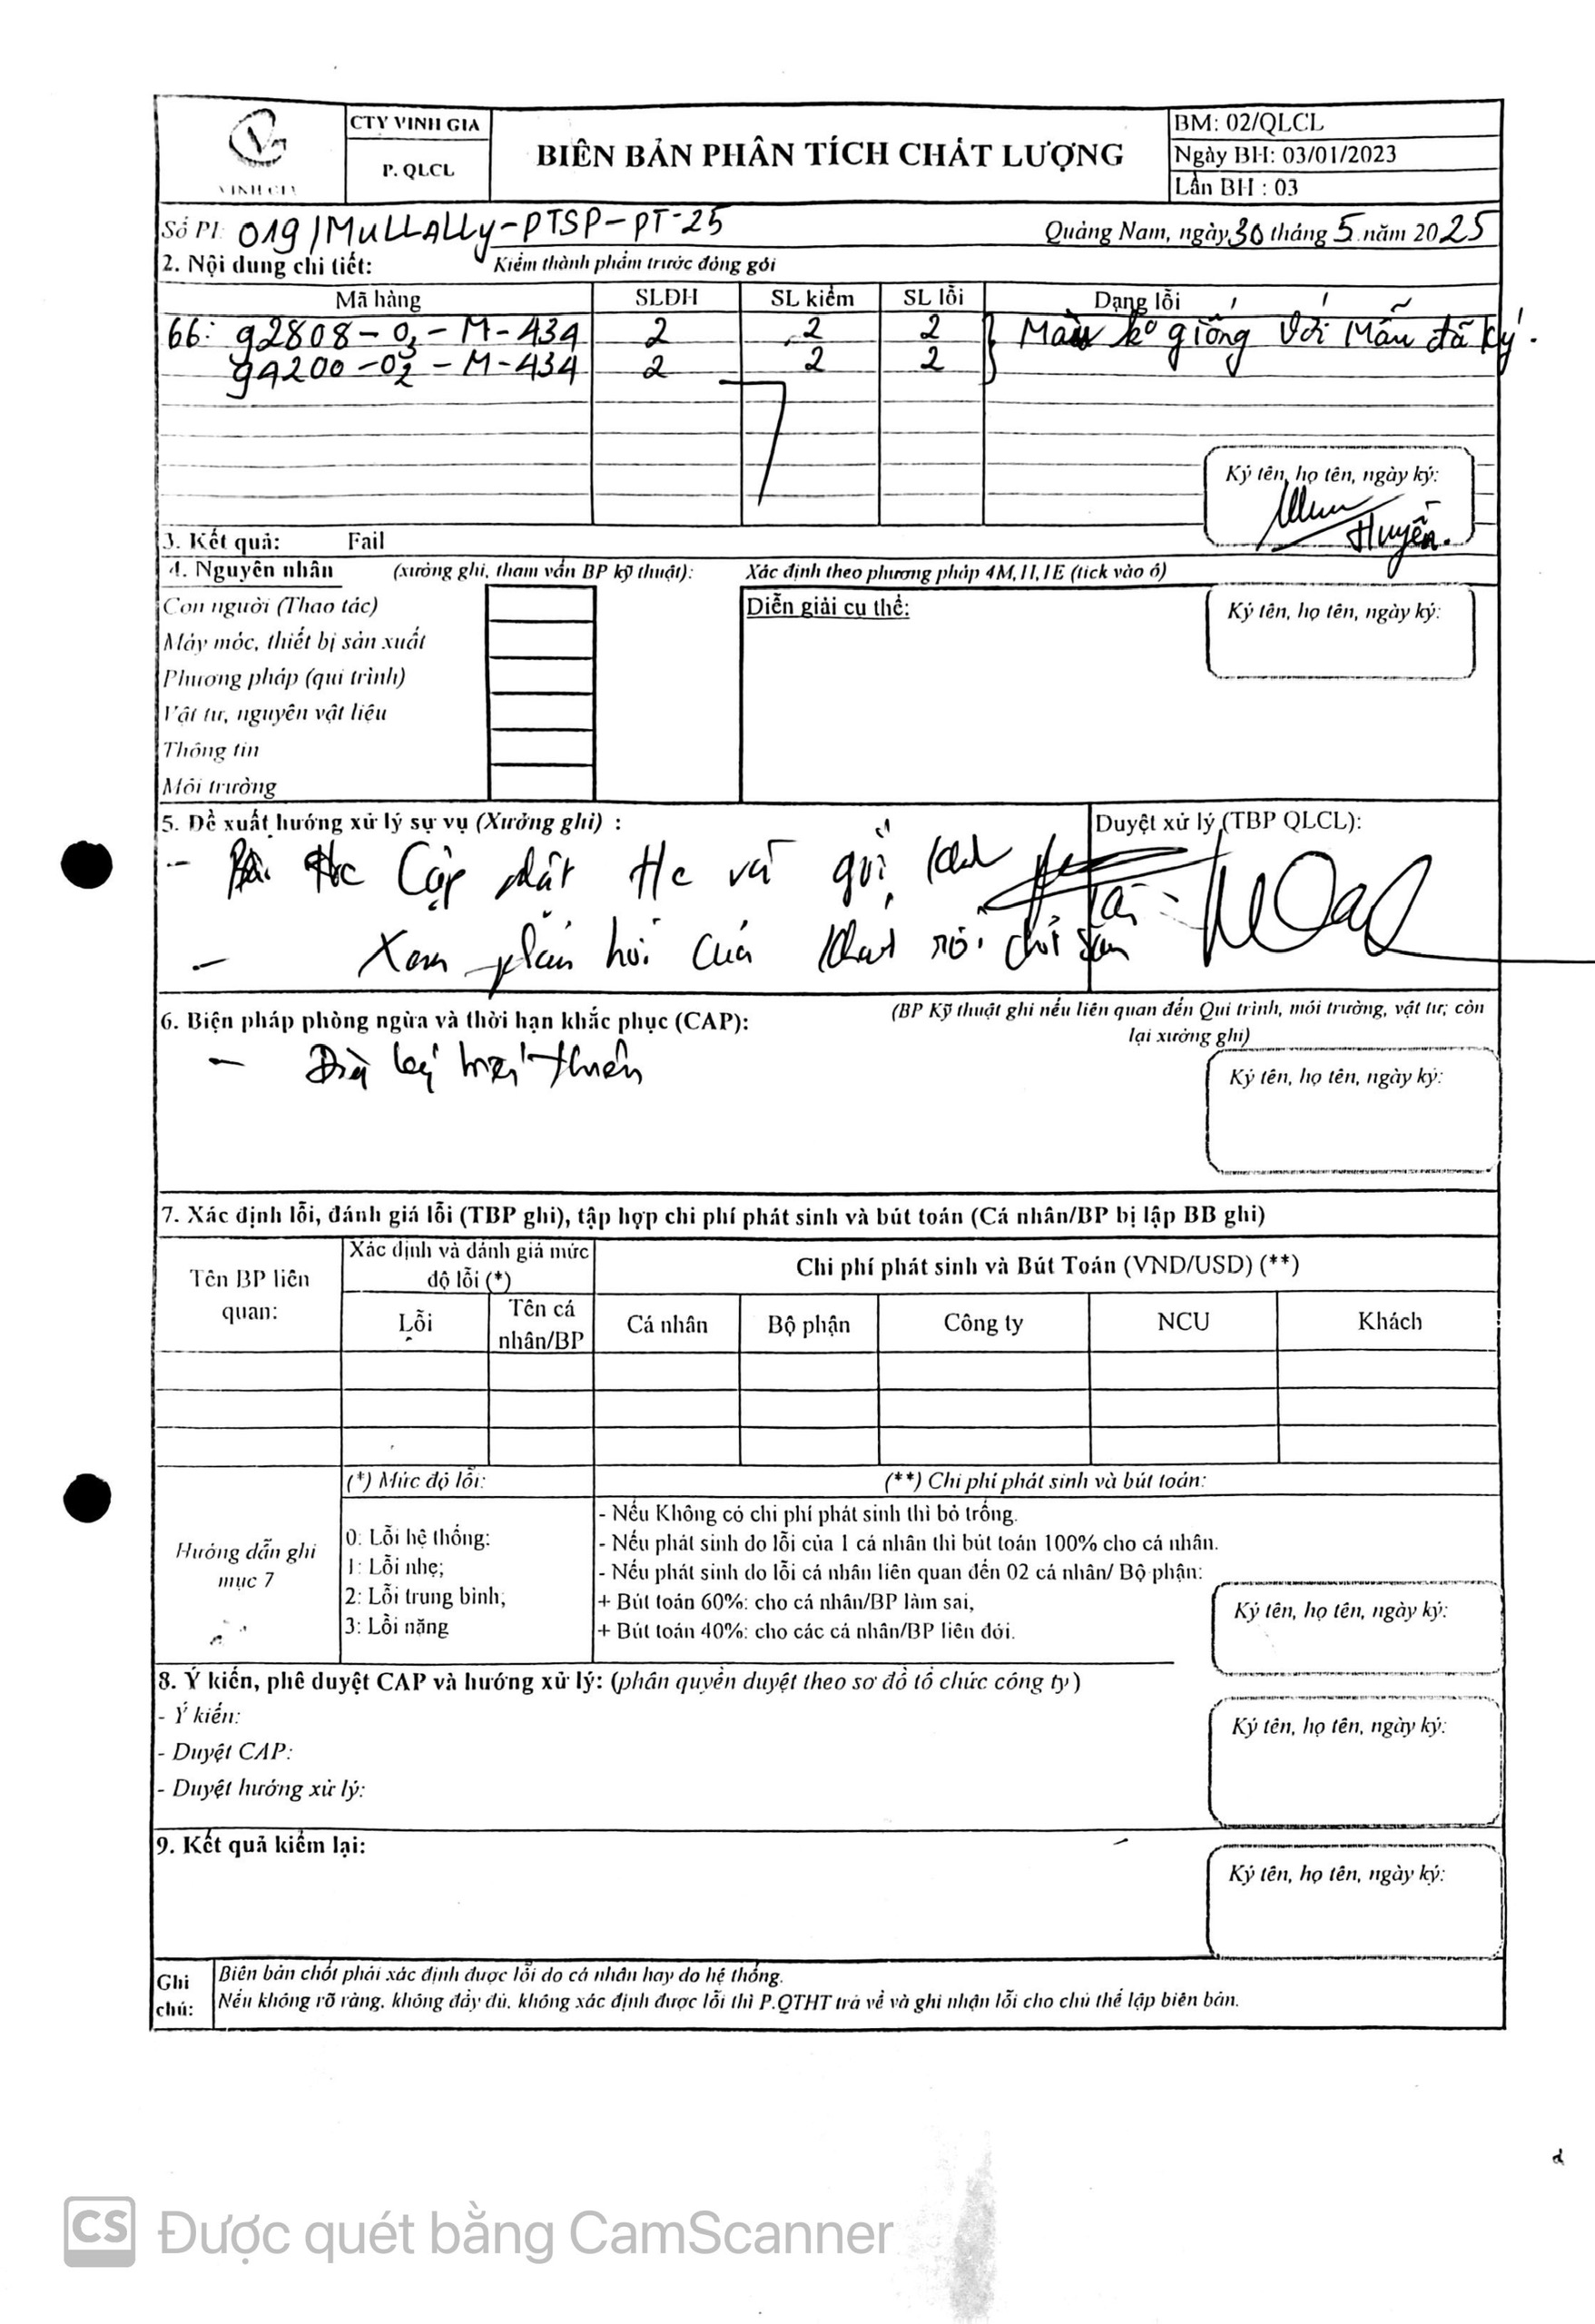 CTY VINH GIA
P. QLCL
VINH GIA
BIÊN BẢN PHÂN TÍCH CHẤT LƯỢNG
BM: 02/QLCL
Ngày BH: 03/01/2023
Lần BH : 03
Số PI: 019/MULLALLY-PTSP-PT-25
Quảng Nam, ngày 30 tháng 5 năm 2025
2. Nội dung chi tiết: Kiểm thành phẩm trước đóng gói
Mã hàng SLĐH SL kiểm SL lỗi Dạng lỗi
66: 92808-02-M-434 2 2 2 Màu ko giống với mẫu đã ký.
94200-02-M-434 2 2 2
Ký tên, họ tên, ngày ký:
Huyền.
3. Kết quả: Fail
4. Nguyên nhân (xưởng ghi, tham vấn BP kỹ thuật): Xác định theo phương pháp 4M,1I,1E (tick vào ô)
Con người (Thao tác)
Máy móc, thiết bị sản xuất
Phương pháp (qui trình)
Vật tư, nguyên vật liệu
Thông tin
Môi trường
Diễn giải cụ thể:
Ký tên, họ tên, ngày ký:
5. Đề xuất hướng xử lý sự vụ (Xưởng ghi) :
Duyệt xử lý (TBP QLCL):
- và gửi
- Xem phản hồi của rồi
6. Biện pháp phòng ngừa và thời hạn khắc phục (CAP):
(BP Kỹ thuật ghi nếu liên quan đến Qui trình, môi trường, vật tư; còn
lại xưởng ghi)
Ký tên, họ tên, ngày ký:
7. Xác định lỗi, đánh giá lỗi (TBP ghi), tập hợp chi phí phát sinh và bút toán (Cá nhân/BP bị lập BB ghi)
Tên BP liên
quan:
Xác định và đánh giá mức
độ lỗi (*)
Chi phí phát sinh và Bút Toán (VND/USD) (**)
Lỗi
Tên cá
nhân/BP
Cá nhân Bộ phận Công ty NCU Khách
Hướng dẫn ghi
mục 7
(*) Mức độ lỗi:
0: Lỗi hệ thống:
1: Lỗi nhẹ;
2: Lỗi trung bình;
3: Lỗi nặng
(**) Chi phí phát sinh và bút toán:
- Nếu Không có chi phí phát sinh thì bỏ trống.
- Nếu phát sinh do lỗi của 1 cá nhân thì bút toán 100% cho cá nhân.
- Nếu phát sinh do lỗi cá nhân liên quan đến 02 cá nhân/ Bộ phận:
+ Bút toán 60%: cho cá nhân/BP làm sai,
+ Bút toán 40%: cho các cá nhân/BP liên đới.
Ký tên, họ tên, ngày ký:
8. Ý kiến, phê duyệt CAP và hướng xử lý: (phân quyền duyệt theo sơ đồ tổ chức công ty)
- Ý kiến:
- Duyệt CAP:
- Duyệt hướng xử lý:
Ký tên, họ tên, ngày ký:
9. Kết quả kiểm lại:
Ký tên, họ tên, ngày ký:
Ghi
chú:
Biên bản chốt phải xác định được lỗi do cá nhân hay do hệ thống.
Nếu không rõ ràng, không đầy đủ, không xác định được lỗi thì P.QTHT trả về và ghi nhận lỗi cho chủ thể lập biên bản.
CS Được quét bằng CamScanner